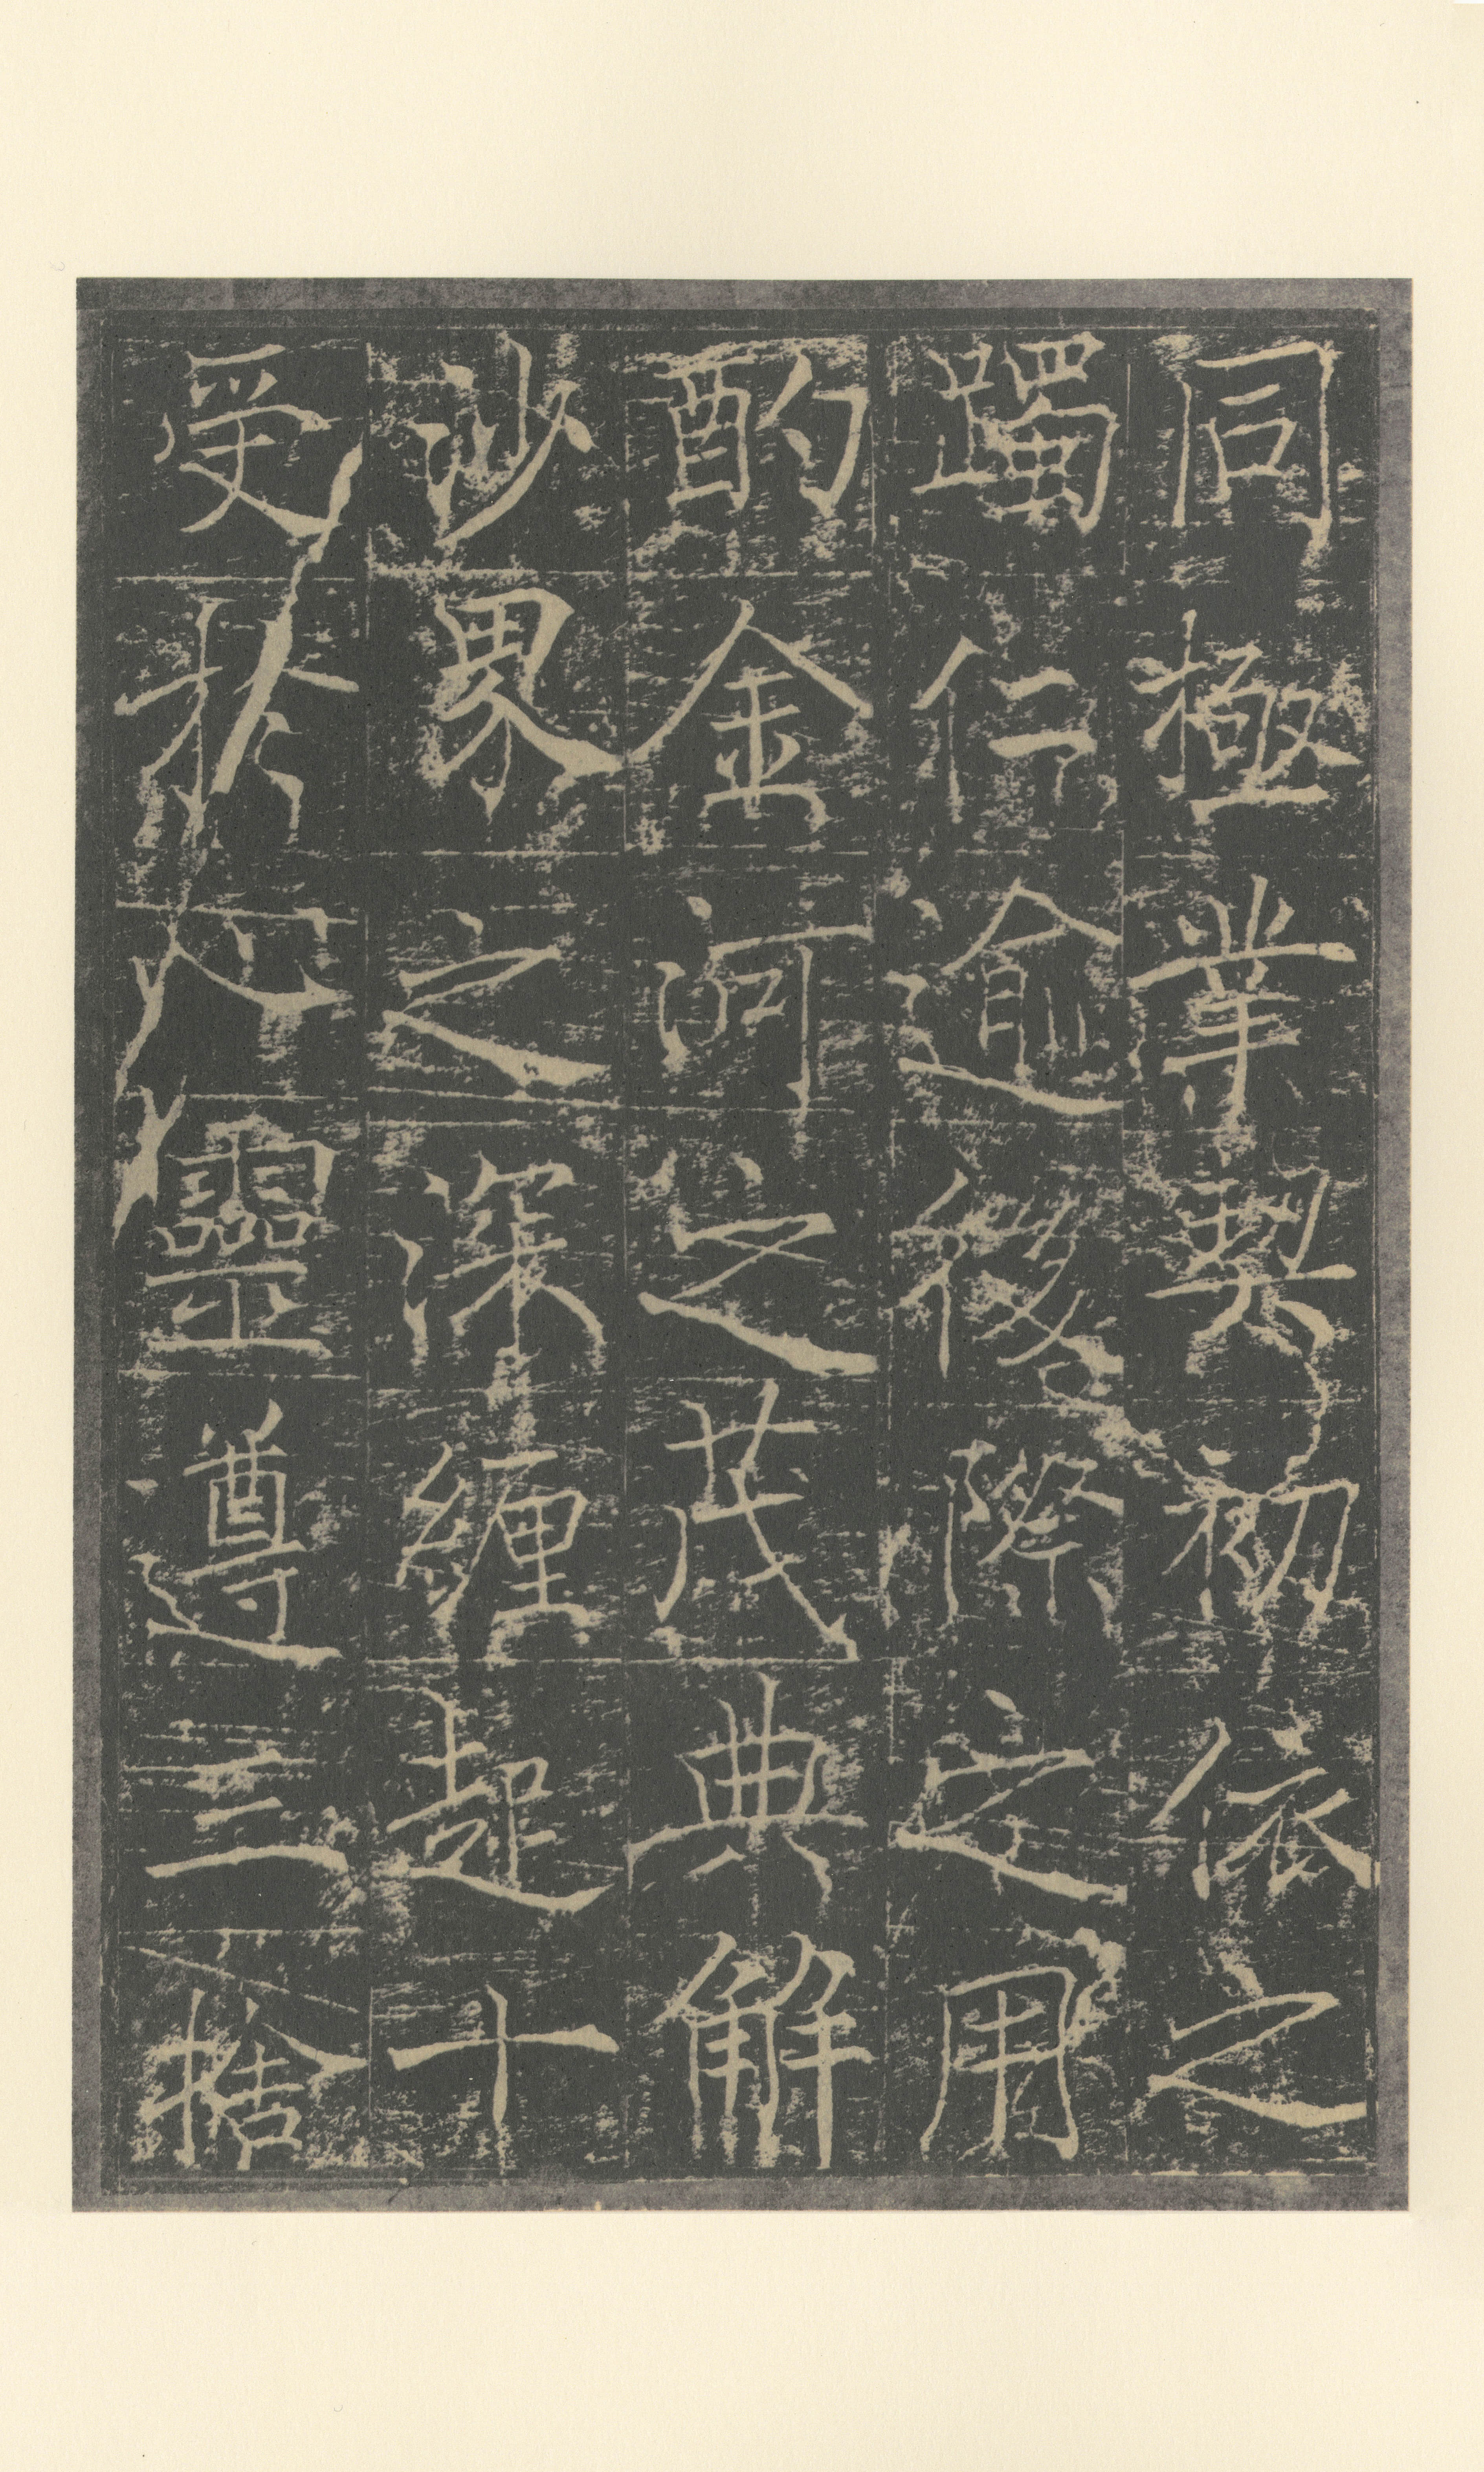 同極業契初依之
躅行逾後際之用
酌金河之茂典解
沙界之深纏超十
受於心靈遵三捨